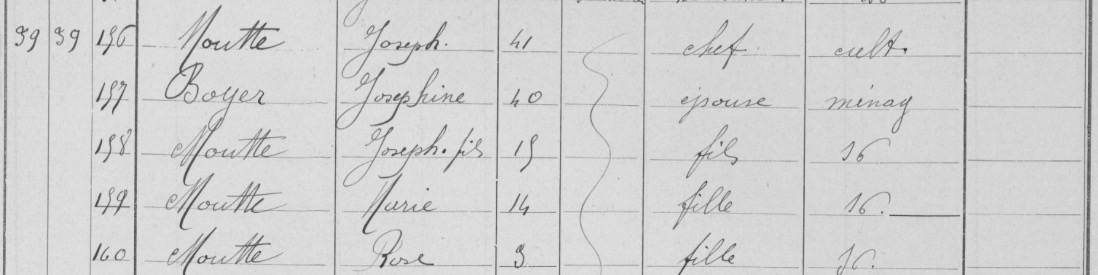 39 39 156 Moutte Joseph. 41 chef. cult.
157 Boyer Joséphine 40 épouse ménag
158 Moutte Joseph. fils 15 fils
159 Moutte Marie 14 fille
160 Moutte Rose 3 fille